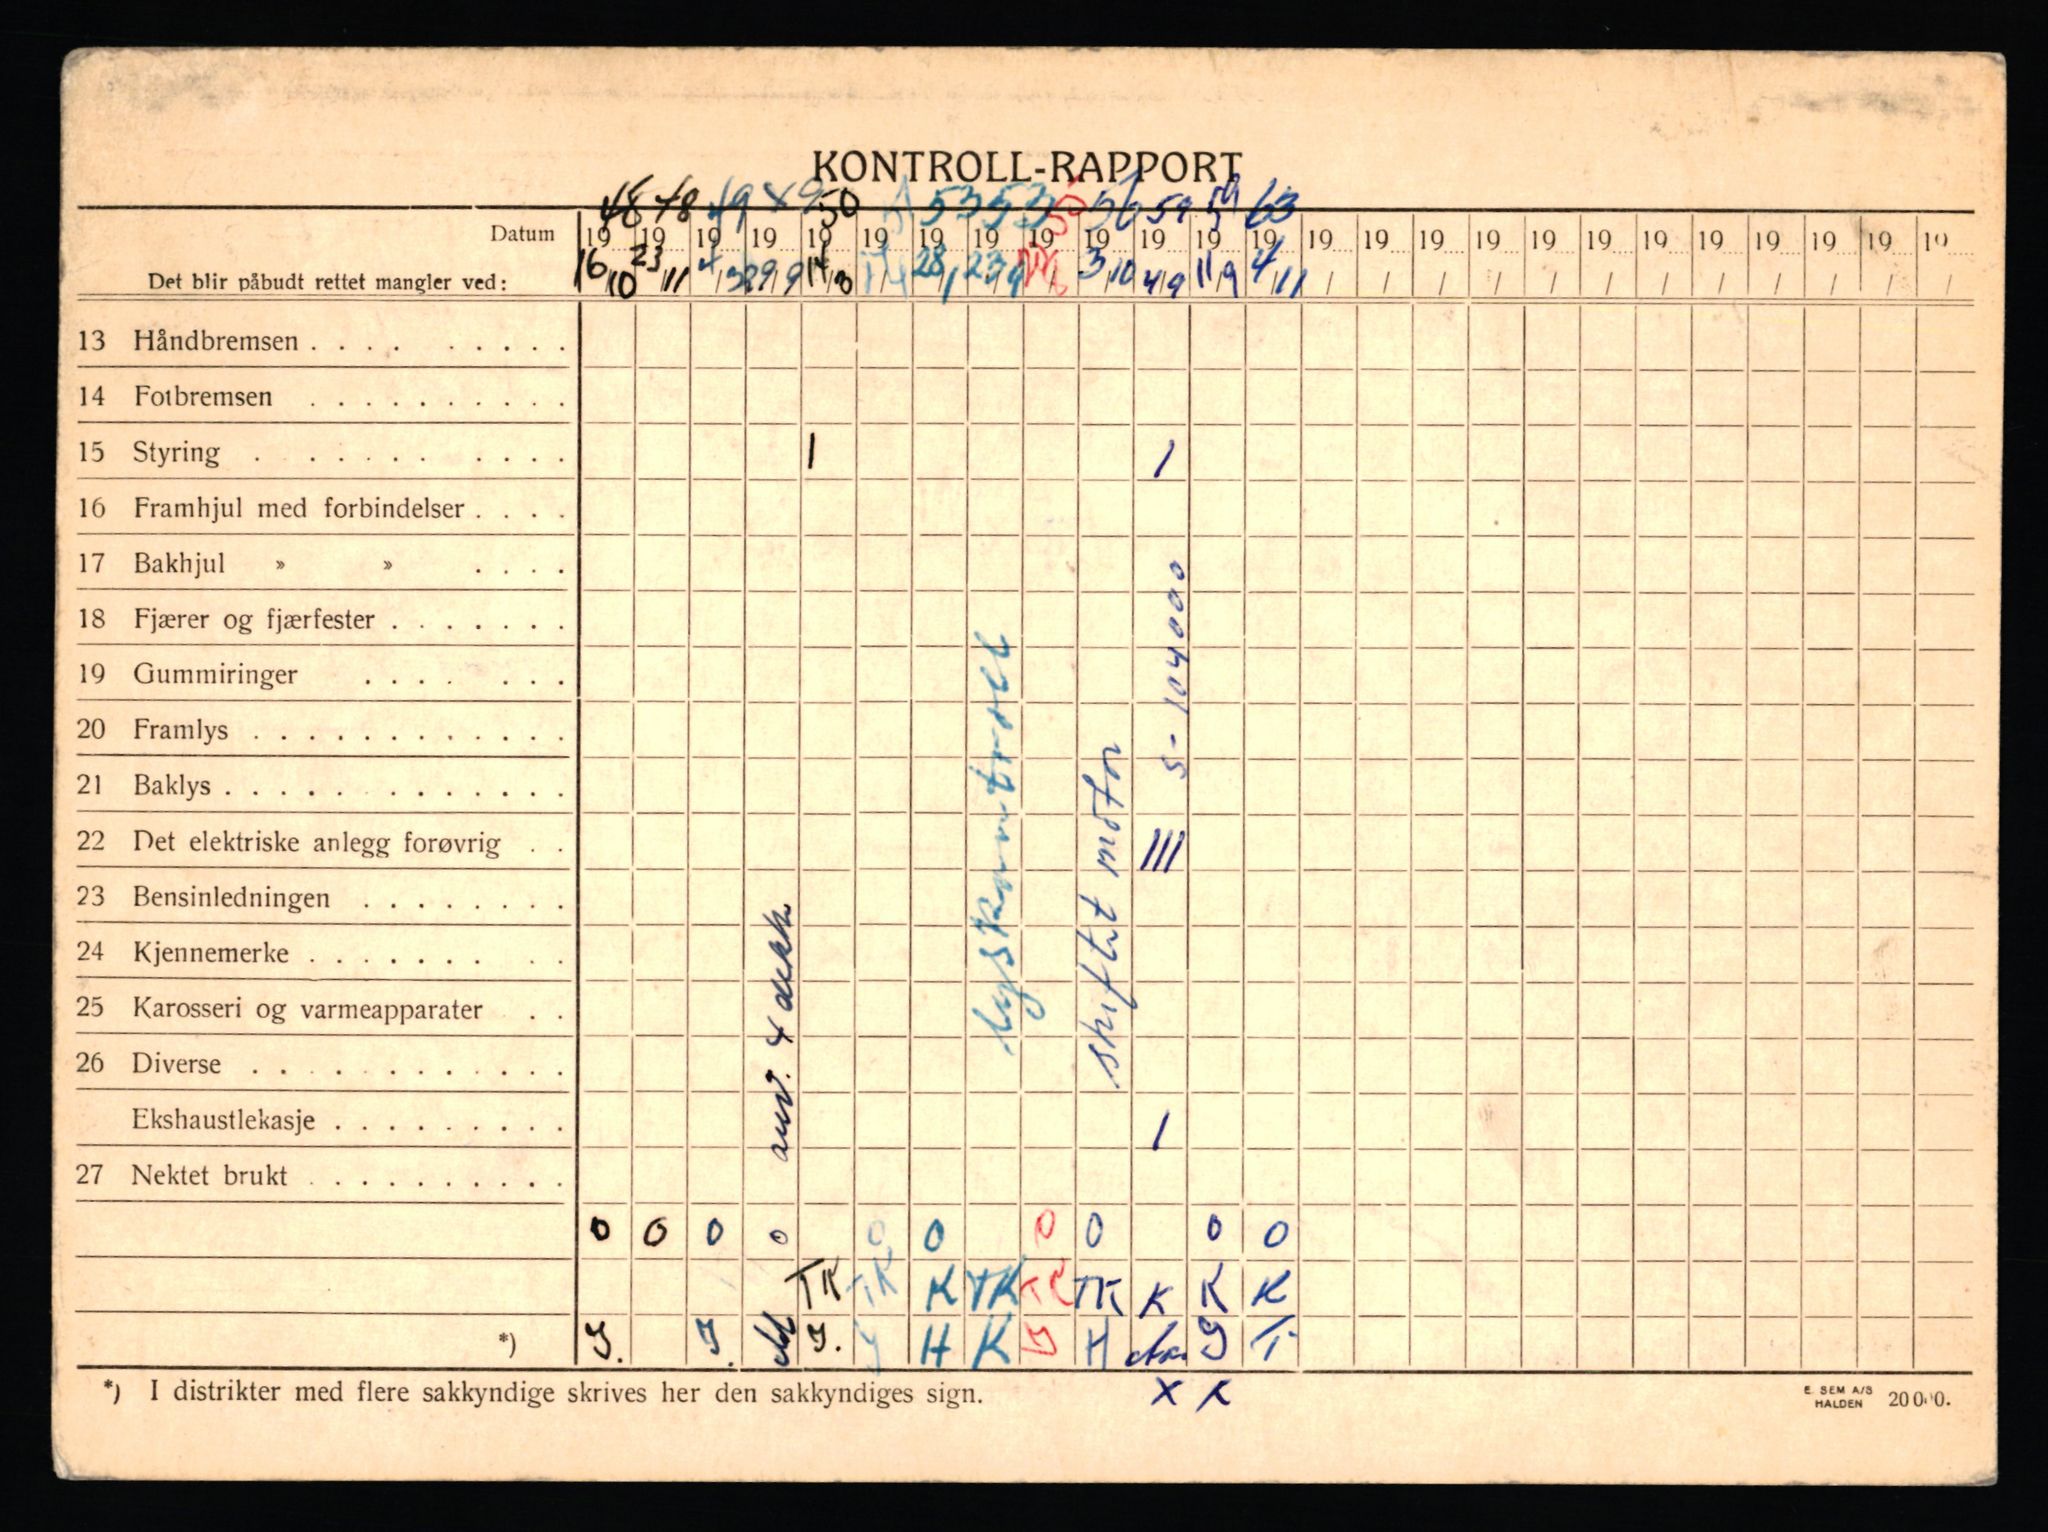 KONTROLL-RAPPORT
48 48 49 49 50 51 53 53 55 56 59 59 63
Datum 19 19 19 19 19 19 19 19 19 19 19 19 19 19 19 19 19 19 19 19 19 19 19 19 19
Det blir påbudt rettet mangler ved: 16/10 23/11 4/3 29/9 14/3 28/1 23/4 3/10 4/9 11/9 4/11 / / / / / / / / / / / /
13 Håndbremsen . . . . . . . . .
14 Fotbremsen . . . . . . . . . .
15 Styring . . . . . . . . . . . 1 1
16 Framhjul med forbindelser . . . .
17 Bakhjul » » . . . .
18 Fjærer og fjærfester . . . . . . .
19 Gummiringer . . . . . . .
20 Framlys . . . . . . . . . . . .
21 Baklys . . . . . . . . . . . . .
22 Det elektriske anlegg forøvrig . . III
23 Bensinledningen . . . . . . . .
24 Kjennemerke . . . . . . . . .
25 Karosseri og varmeapparater . .
26 Diverse . . . . . . . . . . . .
Ekshaustlekasje . . . . . . . . . 1
27 Nektet brukt . . . . . . . . . .
anv. 4 dekk
Lyskontroll
skiftet motor
S-104000
0 0 0 0 0 0 0 0 0 0
TK TK K TK TK TK K K K
*) J. J. J. H K H T
*) I distrikter med flere sakkyndige skrives her den sakkyndiges sign. X K
E. SEM A/S
HALDEN 20000.